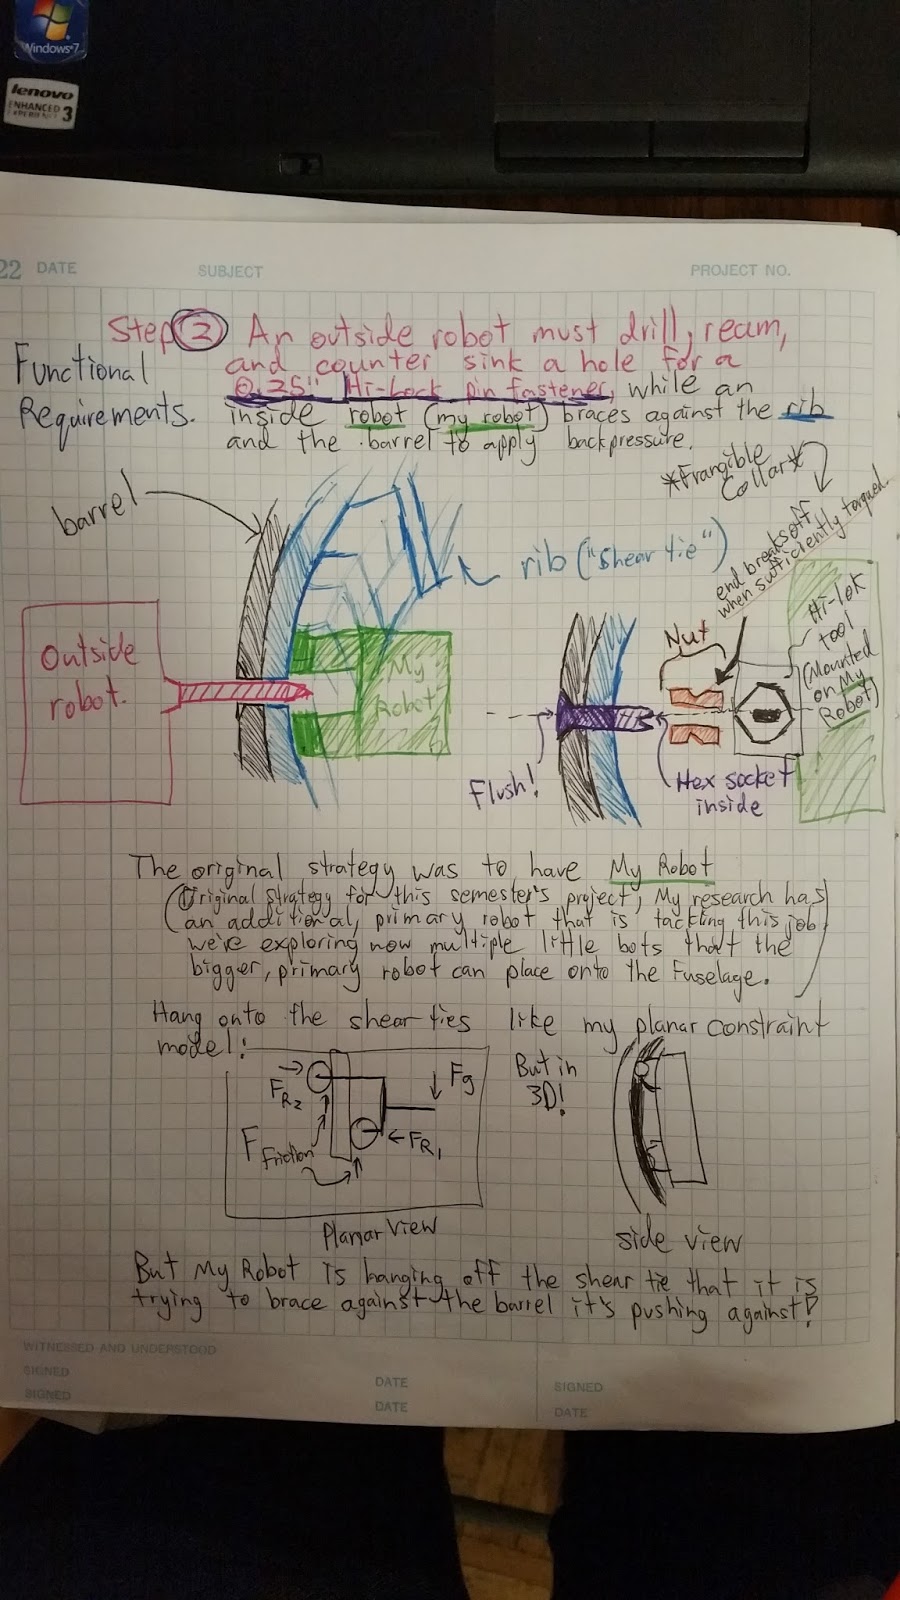 Windows 7
lenovo
ENHANCED
EXPERIENCE 3
22 DATE SUBJECT PROJECT NO.
Functional
Requirements.
Step 2 An outside robot must drill, ream,
and counter sink a hole for a
0.25" Hi-Lock pin fastener, while an
inside robot (my robot) braces against the rib
and the barrel to apply backpressure.
*Frangible
Collar*
end breaks off
when sufficiently torqued.
barrel
rib ("shear tie")
Outside
robot.
My
Robot
Nut
Hi-lok
tool
(Mounted
on My
Robot)
Flush!
Hex socket
inside
The original strategy was to have My Robot
(Original Strategy for this semester's project, My research has
an additional, primary robot that is tackling this job
we're exploring now multiple little bots that the
bigger, primary robot can place onto the Fuselage.)
Hang onto the shear ties like my planar constraint
model!
FR2
Fg
F friction
FR1
But in
3D!
Planar View
side view
But My Robot is hanging off the shear tie that it is
trying to brace against the barrel it's pushing against!?
WITNESSED AND UNDERSTOOD
SIGNED DATE SIGNED
SIGNED DATE DATE